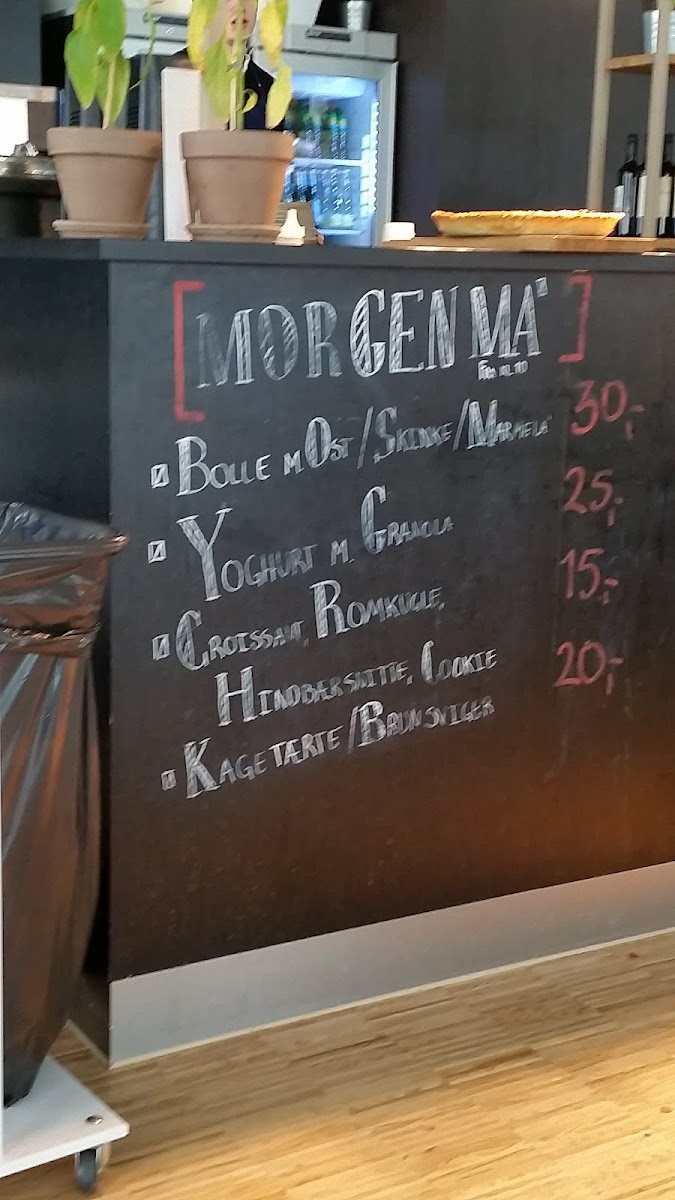 [MORGENMA°]
30,-
BOLLE M. OST/SKINKE/MARMELA
25,-
YOGHURT M. GRANOLA
15,-
CROISSANT, ROMKUGLE,
HINDBÆRSNITTE, COOKIE
20,-
KAGETÆRTE/BRUNSVIGER